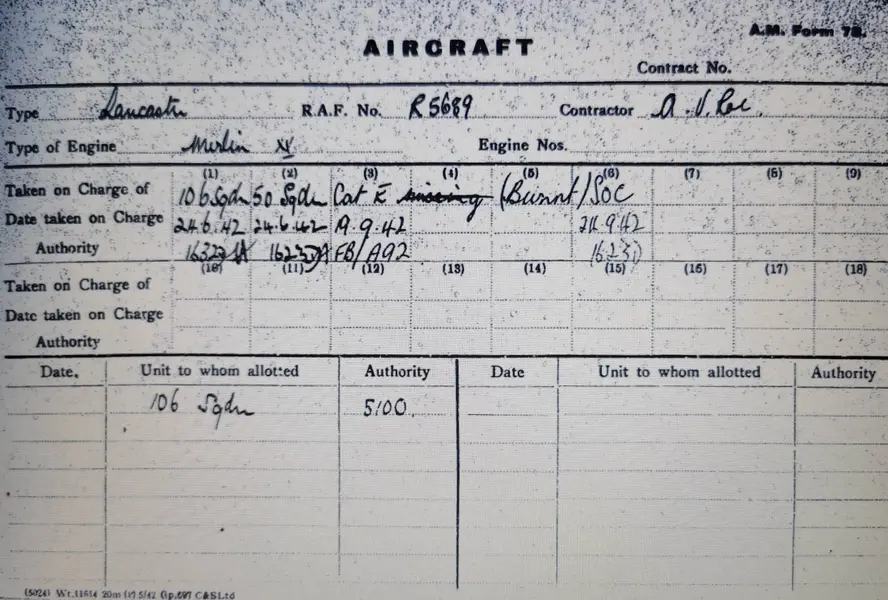 A.M. Form 78.
AIRCRAFT
Contract No.
Type Lancaster R.A.F. No. R5689 Contractor A.V. Roe.
Type of Engine Merlin XX Engine Nos.
(1) (2) (3) (4) (5) (6) (7) (8) (9)
Taken on Charge of 106 Sqdn 50 Sqdn Cat E missing (Burnt) SOC
Date taken on Charge 24.6.42 24.6.42 19.9.42 24.9.42
Authority FB/A92
(10) (11) (12) (13) (14) (15) (16) (17) (18)
Taken on Charge of
Date taken on Charge
Authority
Date. Unit to whom allotted Authority Date Unit to whom allotted Authority
106 Sqdn 5100.
(5024) Wt.11614 20m 5/42 Gp.697 C&S Ltd